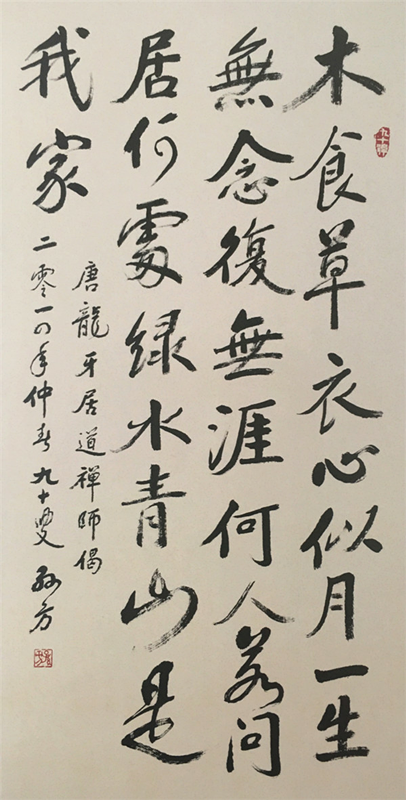 木食草衣心似月一生
無念復無涯何人若問
居何處绿水青山是
我家
唐龍牙居道禪師偈
二零一四年仲春九十叟孙方